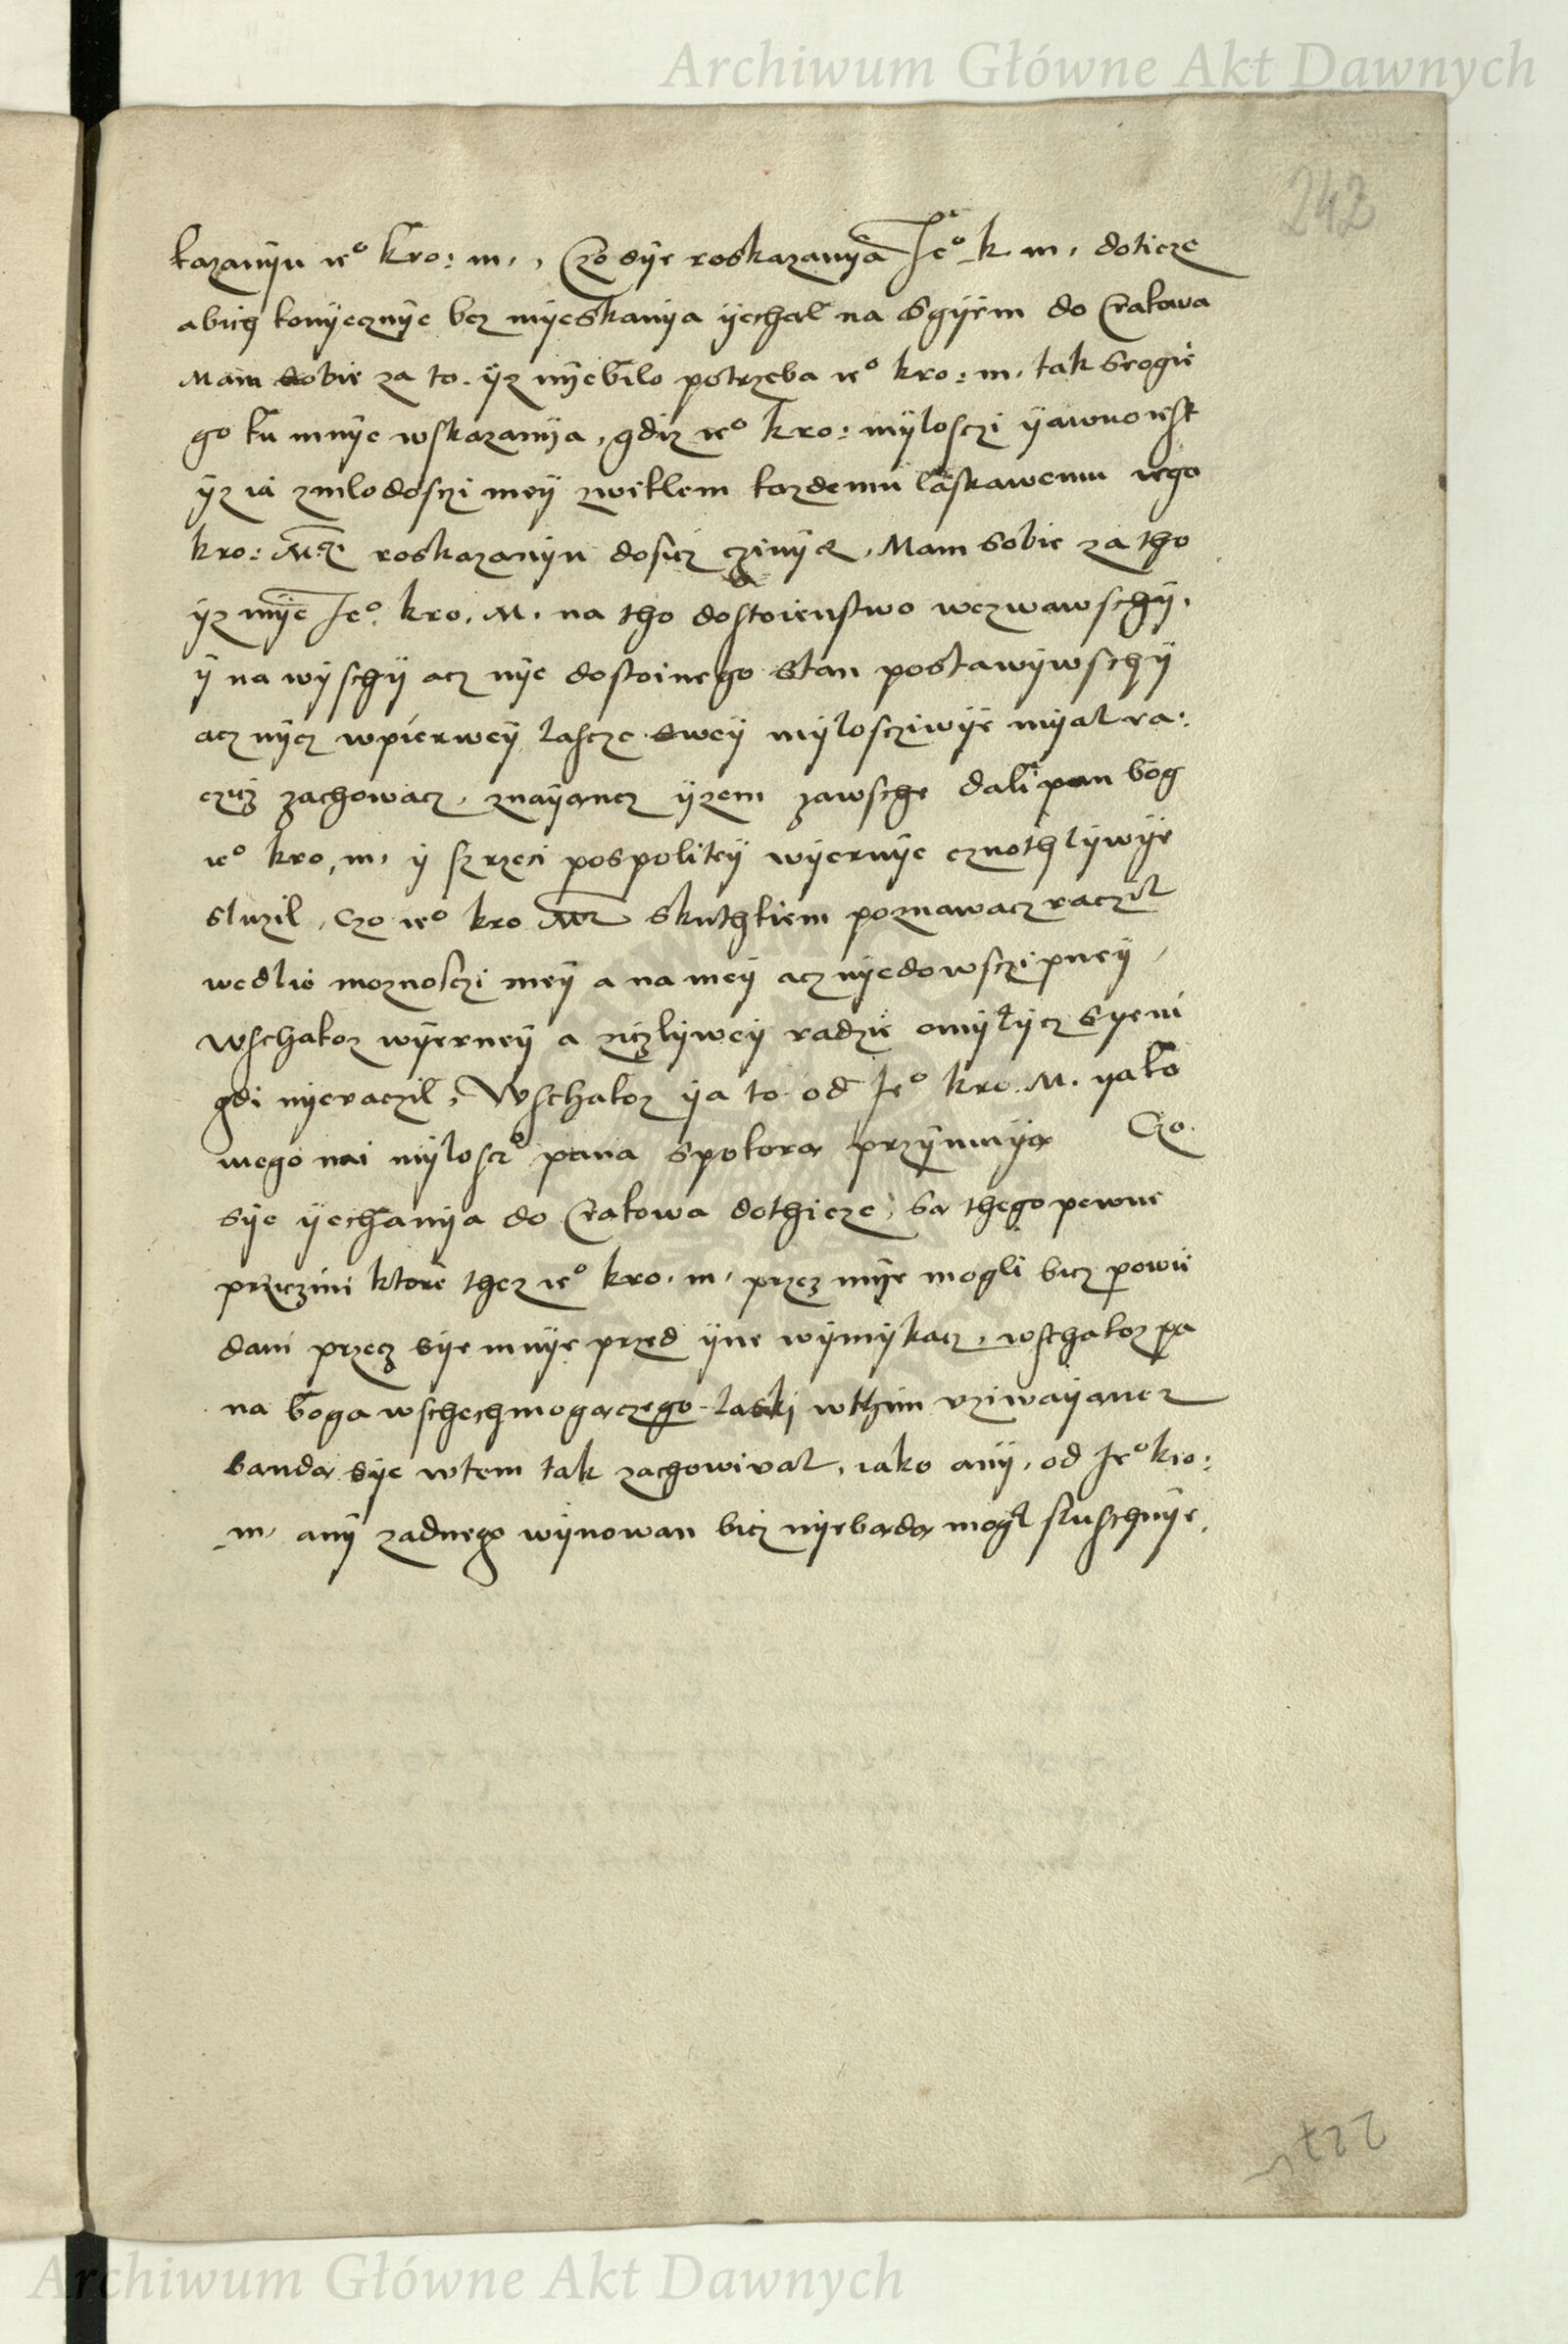 Archiwum Główne Akt Dawnych
242
kazanÿu ie° kro: m., Czo sÿe roskazanÿa Je° k m. doticze
abich konÿecznÿe bez mÿeskanÿa ÿechal na Sgÿem do Crakowa
Mam sobie za to. ÿz nÿebilo potrzeba ie° kro: m. tak srogie
go ku mnÿe wskazanÿa, gdiz ie° kro: mÿlosczi ÿawno iest
ÿz ia zmlodosczi meÿ zwiklem kazdemu laskawemu iego
kro: Mczi roskazanÿu dosicz czinÿcz, Mam sobie za tho
ÿz mÿe Je° kro. M. na tho dostoienstwo wezwawschÿ.
ÿ na wÿschÿ acz nÿe dostoinego stan postawÿwschÿ
acz nÿcz wpierweÿ lascze sweÿ mÿlosciwÿe mÿal ra:
czicz zachowacz, znaÿancz ÿzem zawsche dali pan bog
ie° kro, m, ÿ szrzeci pospoliteÿ wÿernÿe cznothlÿwÿe
sluzil, Czo ie° kro M skuthkiem poznawacz raczil
wedlie moznosczi meÿ a na meÿ acz nÿedowsczipneÿ,
wschakoz wÿerneÿ a ziczlÿweÿ radzie omÿlÿcz sÿe ni
gdi nÿeraczil, Wschakoz ÿa to od Je° kro. M. ÿako
mego nai mÿlosc° pana spokora przÿmuÿa Czo.
sÿe ÿechanÿa do Crakowa dothicze, sa thego pewne
przÿczini ktore thez ie° kro. m, przez mÿe mogli bicz powie
dani przecz sÿe mnÿe przed ÿne wÿmÿkacz, wschakoz pa
na boga wschechmogaczego laski wthim vziwaÿancz
banda sÿe wtem tak zachowiwal, iako anÿ, od Je° kro:
m, anÿ zadnego wÿnowan bicz nÿebada mogl sluschnÿe.
227
Archiwum Główne Akt Dawnych